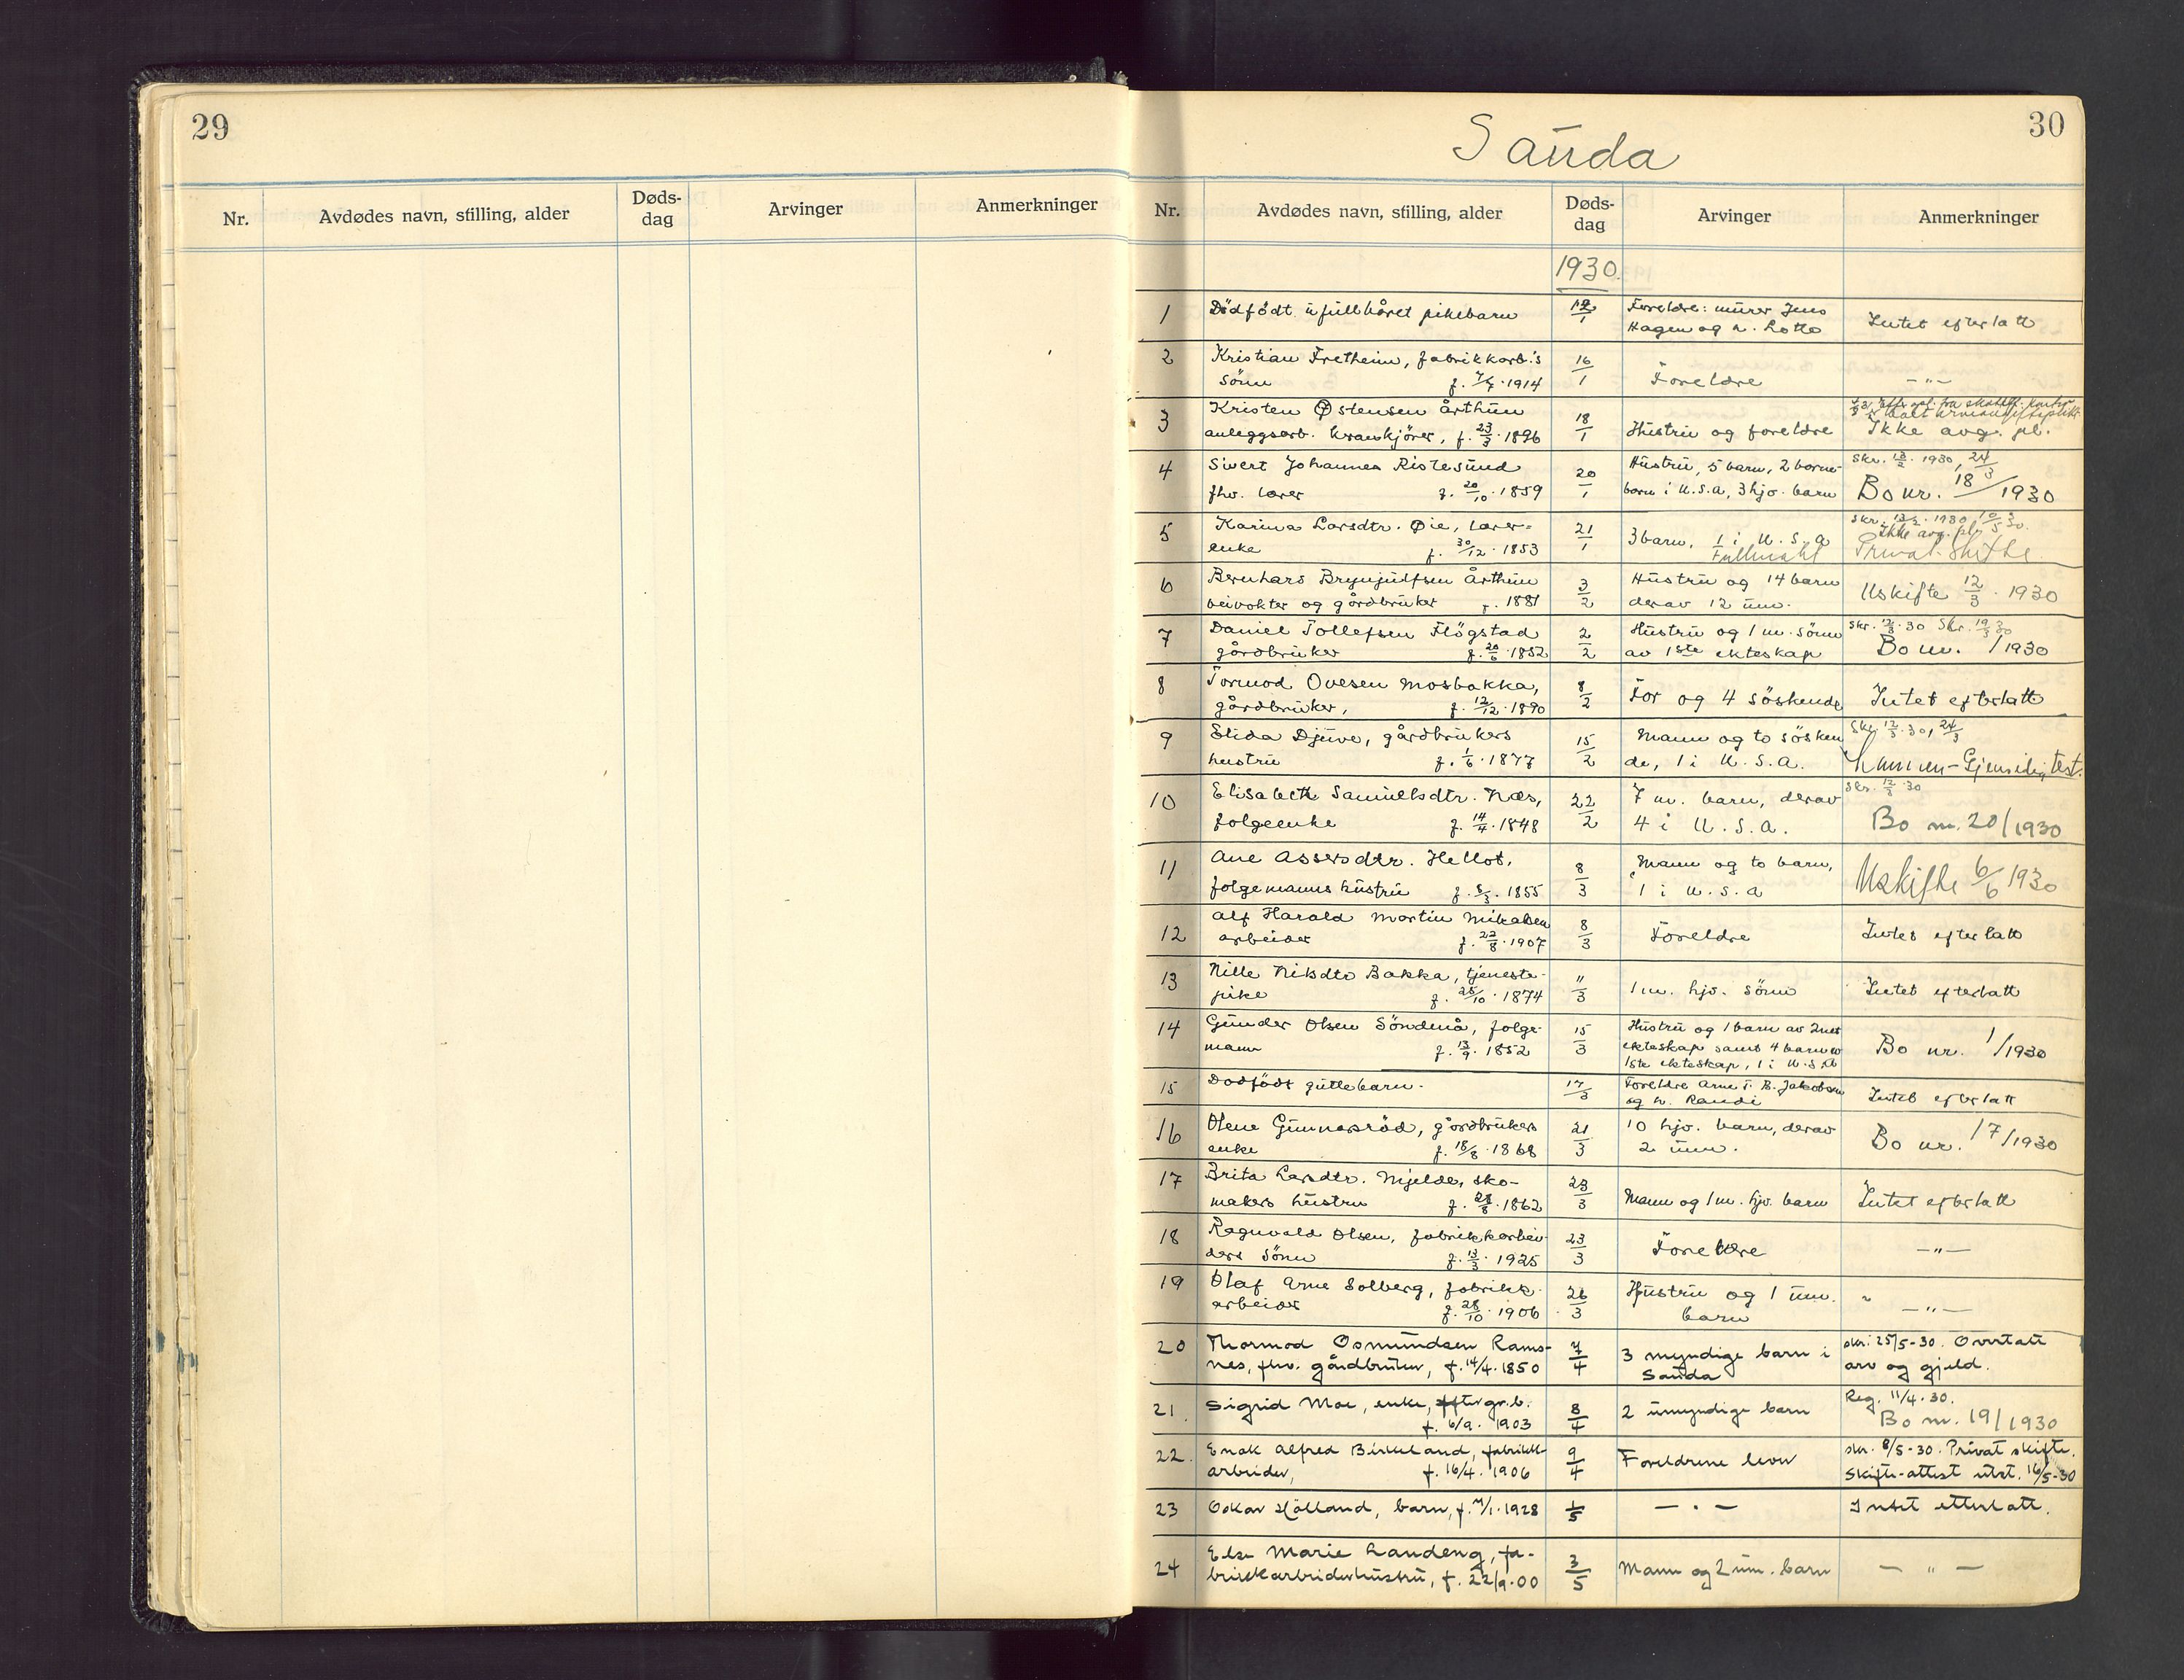 29
Nr.
Avdødes navn, stilling, alder
Døds-
dag
Arvinger
Anmerkninger
30
Sauda
Nr.
Avdødes navn, stilling, alder
Døds-
dag
Arvinger
Anmerkninger
1930.
1 Dödfödt ufullbåret pikebarn 12/1 Foreldre: murer Jens Intet efterlatt
Hagen og h. Lotte
2 Kristian Fretheim, fabrikkarb.'s 16/1 Foreldre —"—
sönn f. 7/7.1914
3 Kristen Østensen Årthun 18/1 Hustru og foreldre Ikke avg. pl.
anleggsarb. krankjörer, f. 23/3.1896
4 Sivert Johannes Risløsund 20/1 Hustru, 5 barn, 2 barne- Skr. 13/2.1930, 24/3
fhv. lærer f. 20/10.1859 barn i U.S.A, 3 hjv. barn Bo nr. 18/1930
5 Karina Larsdtr. Øie, lærer- 21/1 3 barn, 1 i U.S.A Skr. 13/2.1930
enke f. 30/12.1853 Fullmakt Ikke avg. pl. Privat skifte
6 Bernhard Brynjulfsen Årthun 3/2 Hustru og 14 barn Uskifte 12/3.1930
veivokter og gårdbruker f. 1881 derav 12 um.
7 Daniel Tollefsen Flögstad 2/2 Hustru og 1 m. sönn Skr. 12/3.30 Skr. 19/3 30
gårdbruker f. 20/6.1852 av 1ste ekteskap Bo nr. /1930
8 Tormod Ovesen Mosbakka, 8/2 Far og 4 söskende Intet efterlatt
gårdbruker, f. 12/12.1890
9 Elida Djuve, gårdbrukers 15/2 Mann og to sösken Skr. 12/3.30, 24/3
hustru f. 1/6.1877 de, 1 i U.S.A. Gjensidig test.
10 Elisabeth Samuelsdtr. Næs, 22/2 7 m. barn, derav Skr. 12/3.30
folgeenke f. 14/4.1848 4 i U.S.A. Bo nr. 20/1930
11 Ane Assersdtr. Hellot, 8/3 Mann og to barn, Uskifte 6/6 1930
folgemanns hustru f. 5/3.1855 1 i U.S.A
12 Alf Harald Martin Mikalsen 8/3 Foreldre Intet efterlatt
arbeider f. 22/8.1907
13 Nille Nilsdtr Bakka, tjeneste- "/3 1 m. hjv. sönn Intet efterlatt
pike f. 25/10.1874
14 Gunder Olsen Söndenå, folge- 15/3 Hustru og 1 barn av 2net Bo nr. 1/1930
mann f. 13/9.1852 ekteskap samt 4 barn av
1ste ekteskap, 1 i U.S.A
15 Dödfödt guttebarn. 17/3 Foreldre Arne T. B. Jakobsen Intet efterlatt
og h. Randi
16 Olene Gunnarsröd, gårdbrukers 21/3 10 hjv. barn, derav Bo nr. 17/1930
enke f. 18/8.1868 2 um.
17 Brita Larsdtr. Mjelde, sko- 23/3 Mann og 1 m. hjv. barn Intet efterlatt
makers hustru f. 28/8.1862
18 Ragnvald Olsen, fabrikkarbei- 23/3 Foreldre —"—
ders sönn f. 13/3.1925
19 Olaf Arne Solberg, fabrikk- 26/3 Hustru og 1 um. —"—
arbeider f. 28/10.1906 barn
20 Thormod Osmundsen Rams- 7/4 3 myndige barn i skr. 25/5-30. Overtatt
nes, fhv. gårdbruker, f. 14/4.1850 Sauda arv og gjeld.
21. Sigrid Moe, enke, efter gr.b. 8/4 2 umyndige barn Reg. 11/4.30.
f. 6/9.1903 Bo nr. 19/1930
22. Enok Alfred Birkeland, fabrikk- 9/4 Foreldrene lever skr. 8/5-30. Privat skifte.
arbeider, f. 16/4.1906 Skifte-attest utst. 16/5-30
23 Oskar Hölland, barn, f. 7/1.1928 1/5 — " — Intet etterlatt.
24 Else Marie Landeng, fa- 3/5 Mann og 2 um. barn — " —
brikkarbeiderhustru, f. 22/9.00